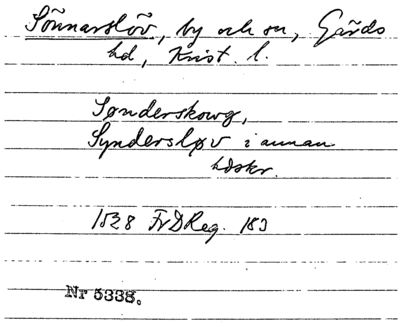 Sönnarslöv, by och sn, Gärds
hd, Krist. l.
Sønderskowg,
Syndersløv i annan
hdskr.
1528 FrDReg. 183
Nr 5338.